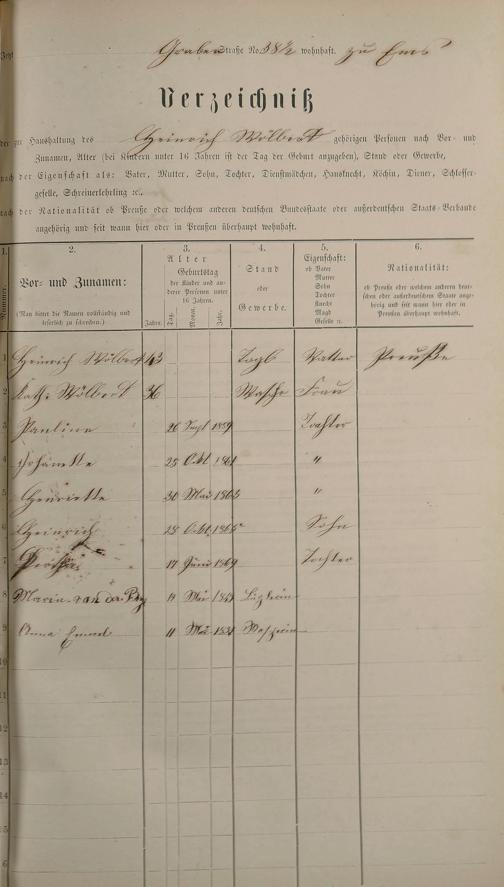 Jetzt Graben straße No. 38½ wohnhaft. zu Ems
Verzeichniß
der zur Haushaltung des Heinrich Wölbert gehörigen Personen nach Vor- und
Zunamen, Alter (bei Kindern unter 16 Jahren ist der Tag der Geburt anzugeben), Stand oder Gewerbe,
nach der Eigenschaft als: Vater, Mutter, Sohn, Tochter, Dienstmädchen, Hausknecht, Köchin, Diener, Schlosser-
geselle, Schreinerlehrling ꝛc.
nach der Nationalität ob Preuße oder welchem anderen deutschen Bundesstaate oder außerdeutschen Staats-Verbande
angehörig und seit wann hier oder in Preußen überhaupt wohnhaft.
1. 2. 3. 4. 5. 6.
Nummer.
Vor- und Zunamen:
(Man bittet die Namen vollständig und
leserlich zu schreiben.)
Alter
Geburtstag
der Kinder und an-
derer Personen unter
16 Jahren.
Jahre. Tag. Monat. Jahr.
Stand
oder
Gewerbe.
Eigenschaft:
ob Vater
Mutter
Sohn
Tochter
Knecht
Magd
Geselle ꝛc.
Nationalität:
ob Preuße oder welchem anderen deut-
schen oder außerdeutschen Staate ange-
hörig und seit wann hier oder in
Preußen überhaupt wohnhaft.
1 Heinrich Wölbert 43 Tagl Vatter Preuße
2 Kath. Wölbert 36 Wasche Frau
3 Pauline 26 Sept 1859 Tochter
4 Johanette 25 Okt 1861 "
5 Henriette 30 Mai 1863 "
6 Heinrich 28 Okt 1865 Sohn
7 17 Juni 1869 Tochter
8 Maria 11 Mai
9 Anna 11 Mai
10
11
12
13
14
15
6